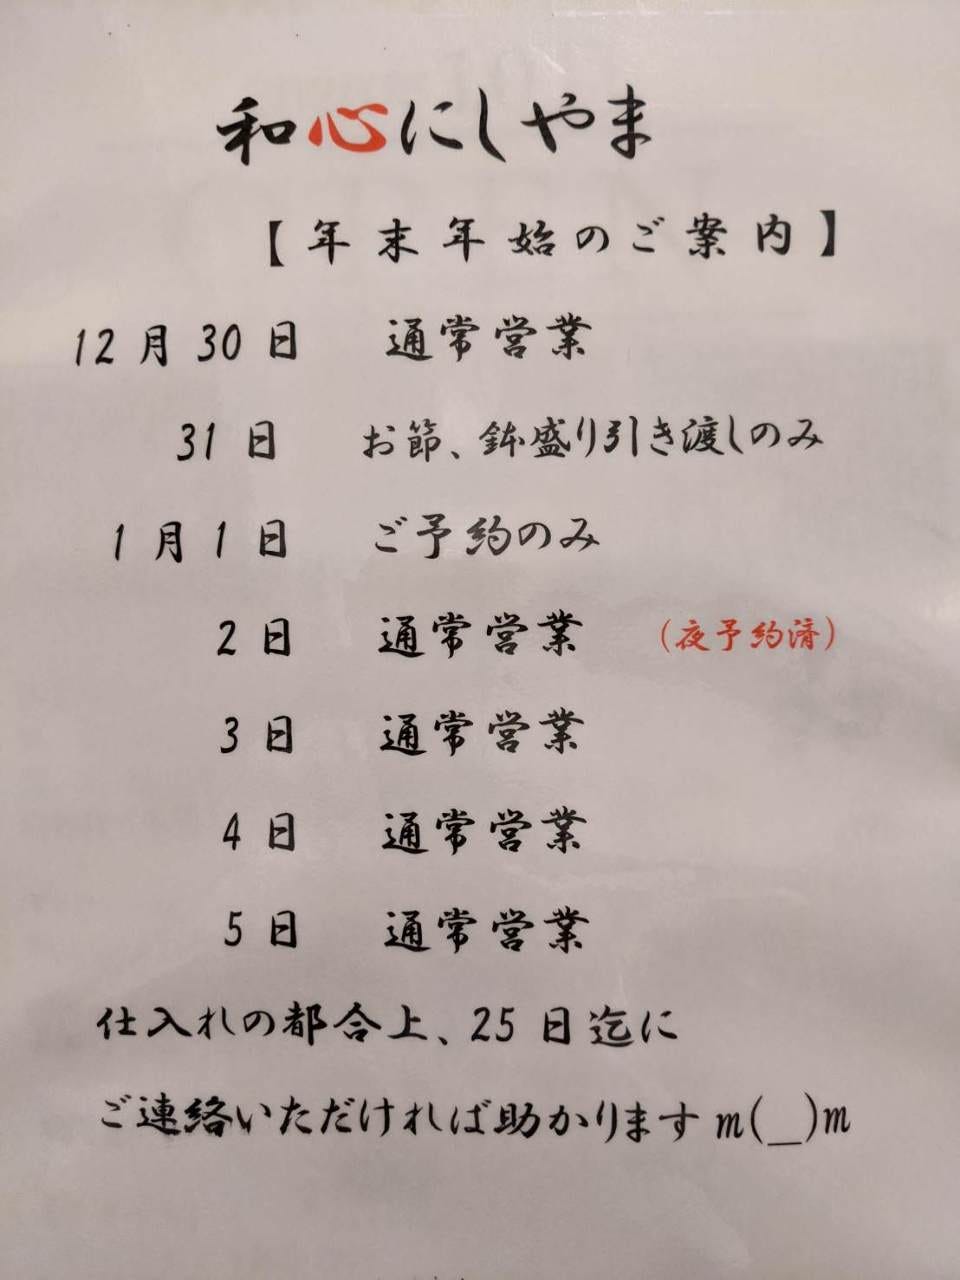 和心にしやま
【年末年始のご案内】
12月30日 通常営業
31日 お節、鉢盛り引き渡しのみ
1月1日 ご予約のみ
2日 通常営業 (夜予約済)
3日 通常営業
4日 通常営業
5日 通常営業
仕入れの都合上、25日迄に
ご連絡いただければ助かりますm(_)m